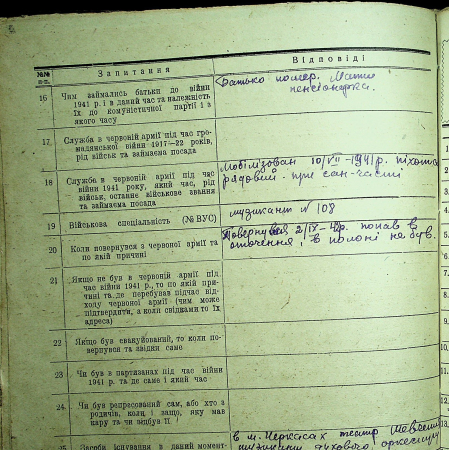 №№ п-п.
Запитання
Відповіді
16
Чим займались батьки до війни
1941 р. і в даний час та належність
їх до комуністичної партії і з
якого часу
Батько помер. Мати
пенсіонерка.
17.
Служба в червоній армії під час гро-
мадянської війни 1917—22 років,
рід військ та займаєма посада
18
Служба в червоній армії під час
війни 1941 року, який час, рід
військ, останнє військове звання
та займаєма посада
Мобілізован 10/VII-1941 р. піхота
рядовий - при сан-часті
19
Військова спеціальність (№ ВУС)
музикант № 108
20
Коли повернувся з червоної армії та
по якій причині
Повернувся 2/IX-42р. попав в
оточення, в полоні не був.
21
Якщо не був в червоній армії під
час війни 1941 р., то по якій при-
чині та де перебував підчас від-
ходу червоної армії (чим може
підтвердити, а коли свідками то їх
адреса)
22
Якщо був евакуйований, то коли по-
вернувся та звідки саме
23
Чи був в партизанах під час війни
1941 р. та де саме і який час
24.
Чи був репресований сам, або хто з
родичів, коли і защо, яку мав
кару та чи відбув її
25.
Засоби існування в даний момент
в м. Черкасах театр Шевченка
духового оркестру